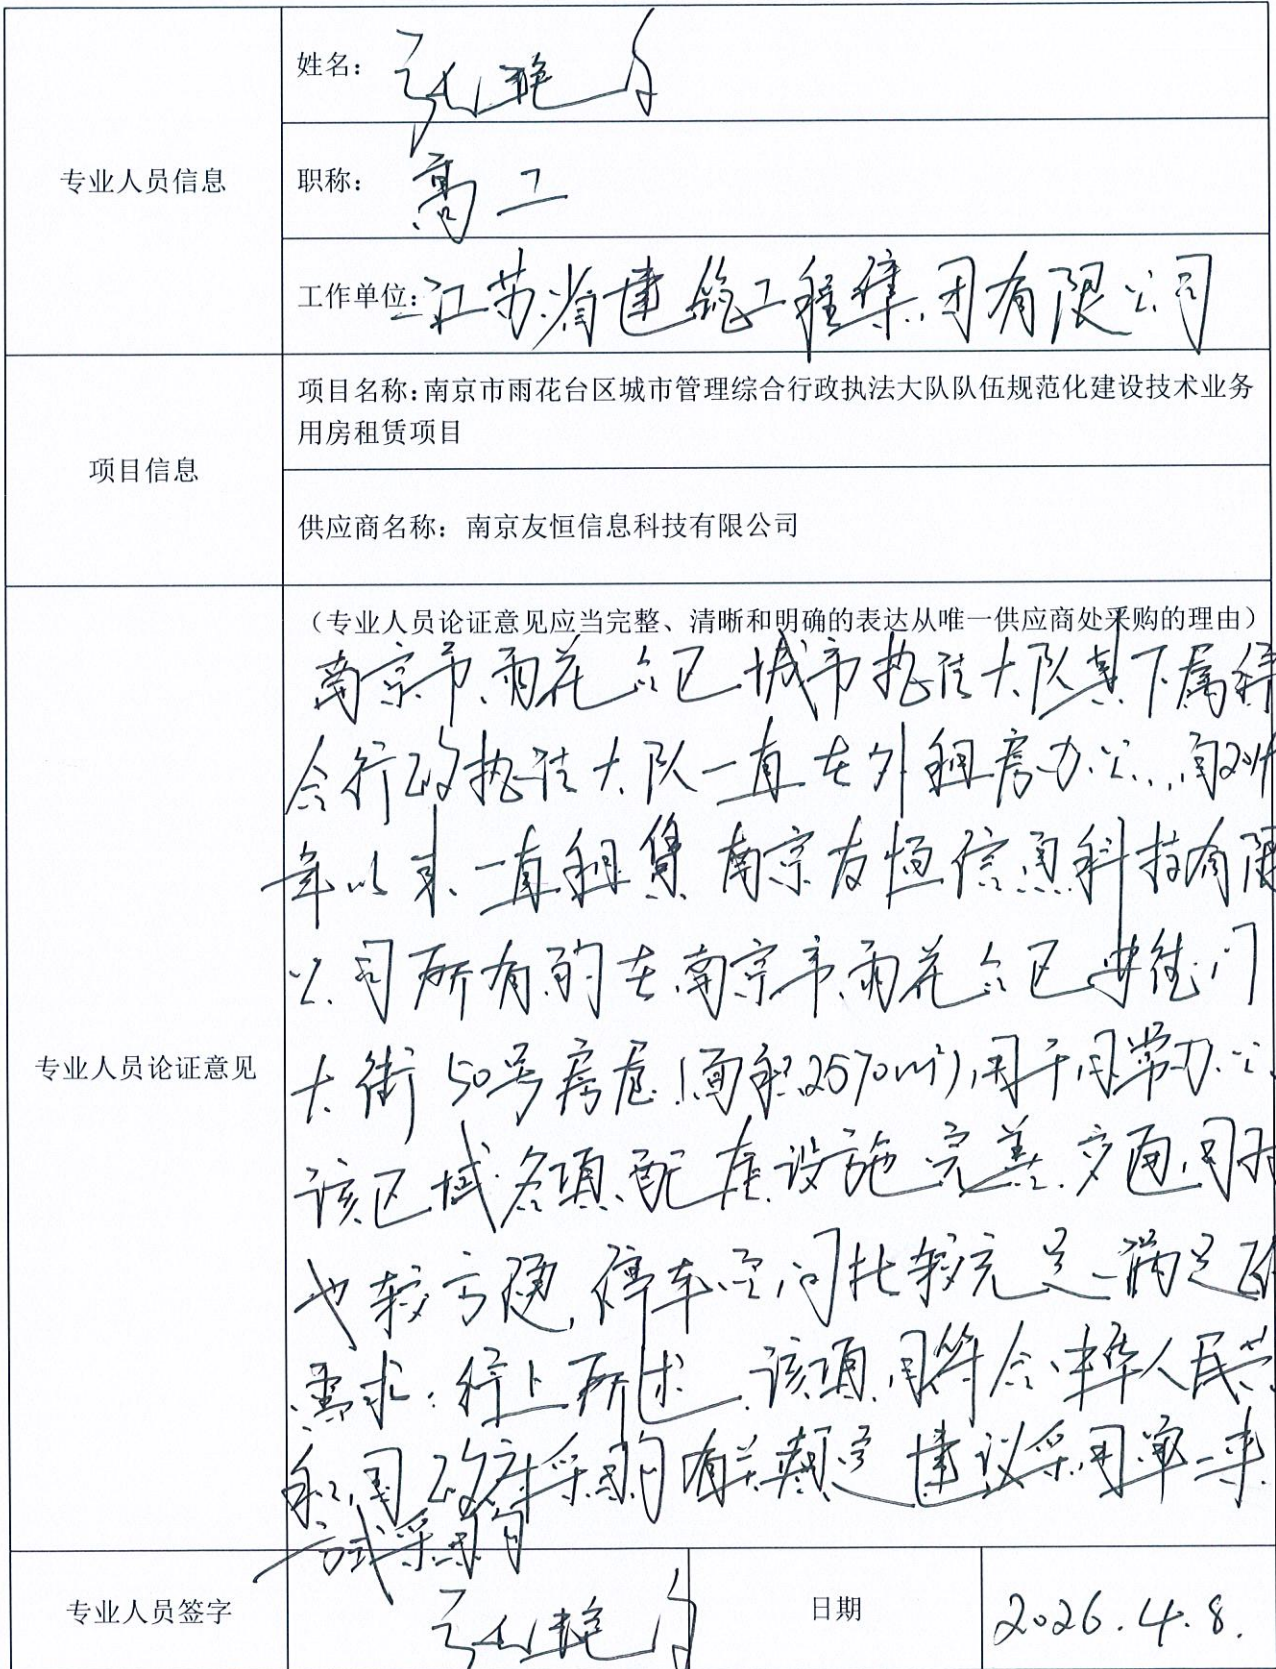 专业人员信息
姓名：张艳
职称：高工
工作单位：江苏省建筑工程集团有限公司
项目信息
项目名称：南京市雨花台区城市管理综合行政执法大队队伍规范化建设技术业务
用房租赁项目
供应商名称：南京友恒信息科技有限公司
专业人员论证意见
（专业人员论证意见应当完整、清晰和明确的表达从唯一供应商处采购的理由）
南京市雨花台区城市执法大队其下属综
合行政执法大队一直在外租房办公,自
年以来一直租赁南京友恒信息科技有限
公司所有的在南京市雨花台区安德门
大街50号房屋(面积2570m²),用于日常办公
该区域各项配套设施完善,交通,同时
也较方便,停车空间比较充足,满足
需求.综上所述,该项目符合中华人民共
和国政府采购有关规定建议采用单一来
方式采购
专业人员签字
张艳
日期
2026.4.8.